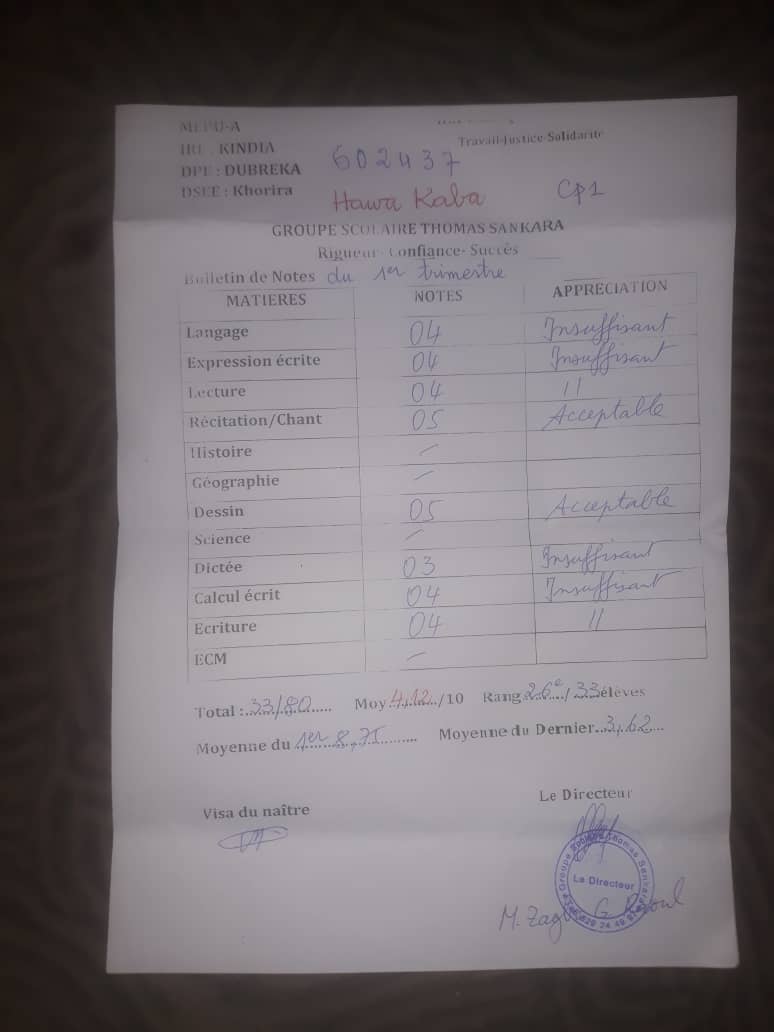 MEPU-A
Travail-Justice-Solidarité
IRE : KINDIA
DPE : DUBREKA 602437
DSEE : Khorira Hawa Kaba CP1
GROUPE SCOLAIRE THOMAS SANKARA
Rigueur- Confiance- Succès
Bulletin de Notes du 1er trimestre
MATIERES NOTES APPRECIATION
Langage 04 Insuffisant
Expression écrite 04 Insuffisant
Lecture 04 //
Récitation/Chant 05 Acceptable
Histoire —
Géographie —
Dessin 05 Acceptable
Science —
Dictée 03 Insuffisant
Calcul écrit 04 Insuffisant
Ecriture 04 //
ECM —
Total : 33/80 Moy 4,12/10 Rang 26e/33 élèves
Moyenne du 1er 8,75 Moyenne du Dernier 3,62
Le Directeur
Visa du naître
Groupe Scolaire Thomas Sankara
Le Directeur
M. G.